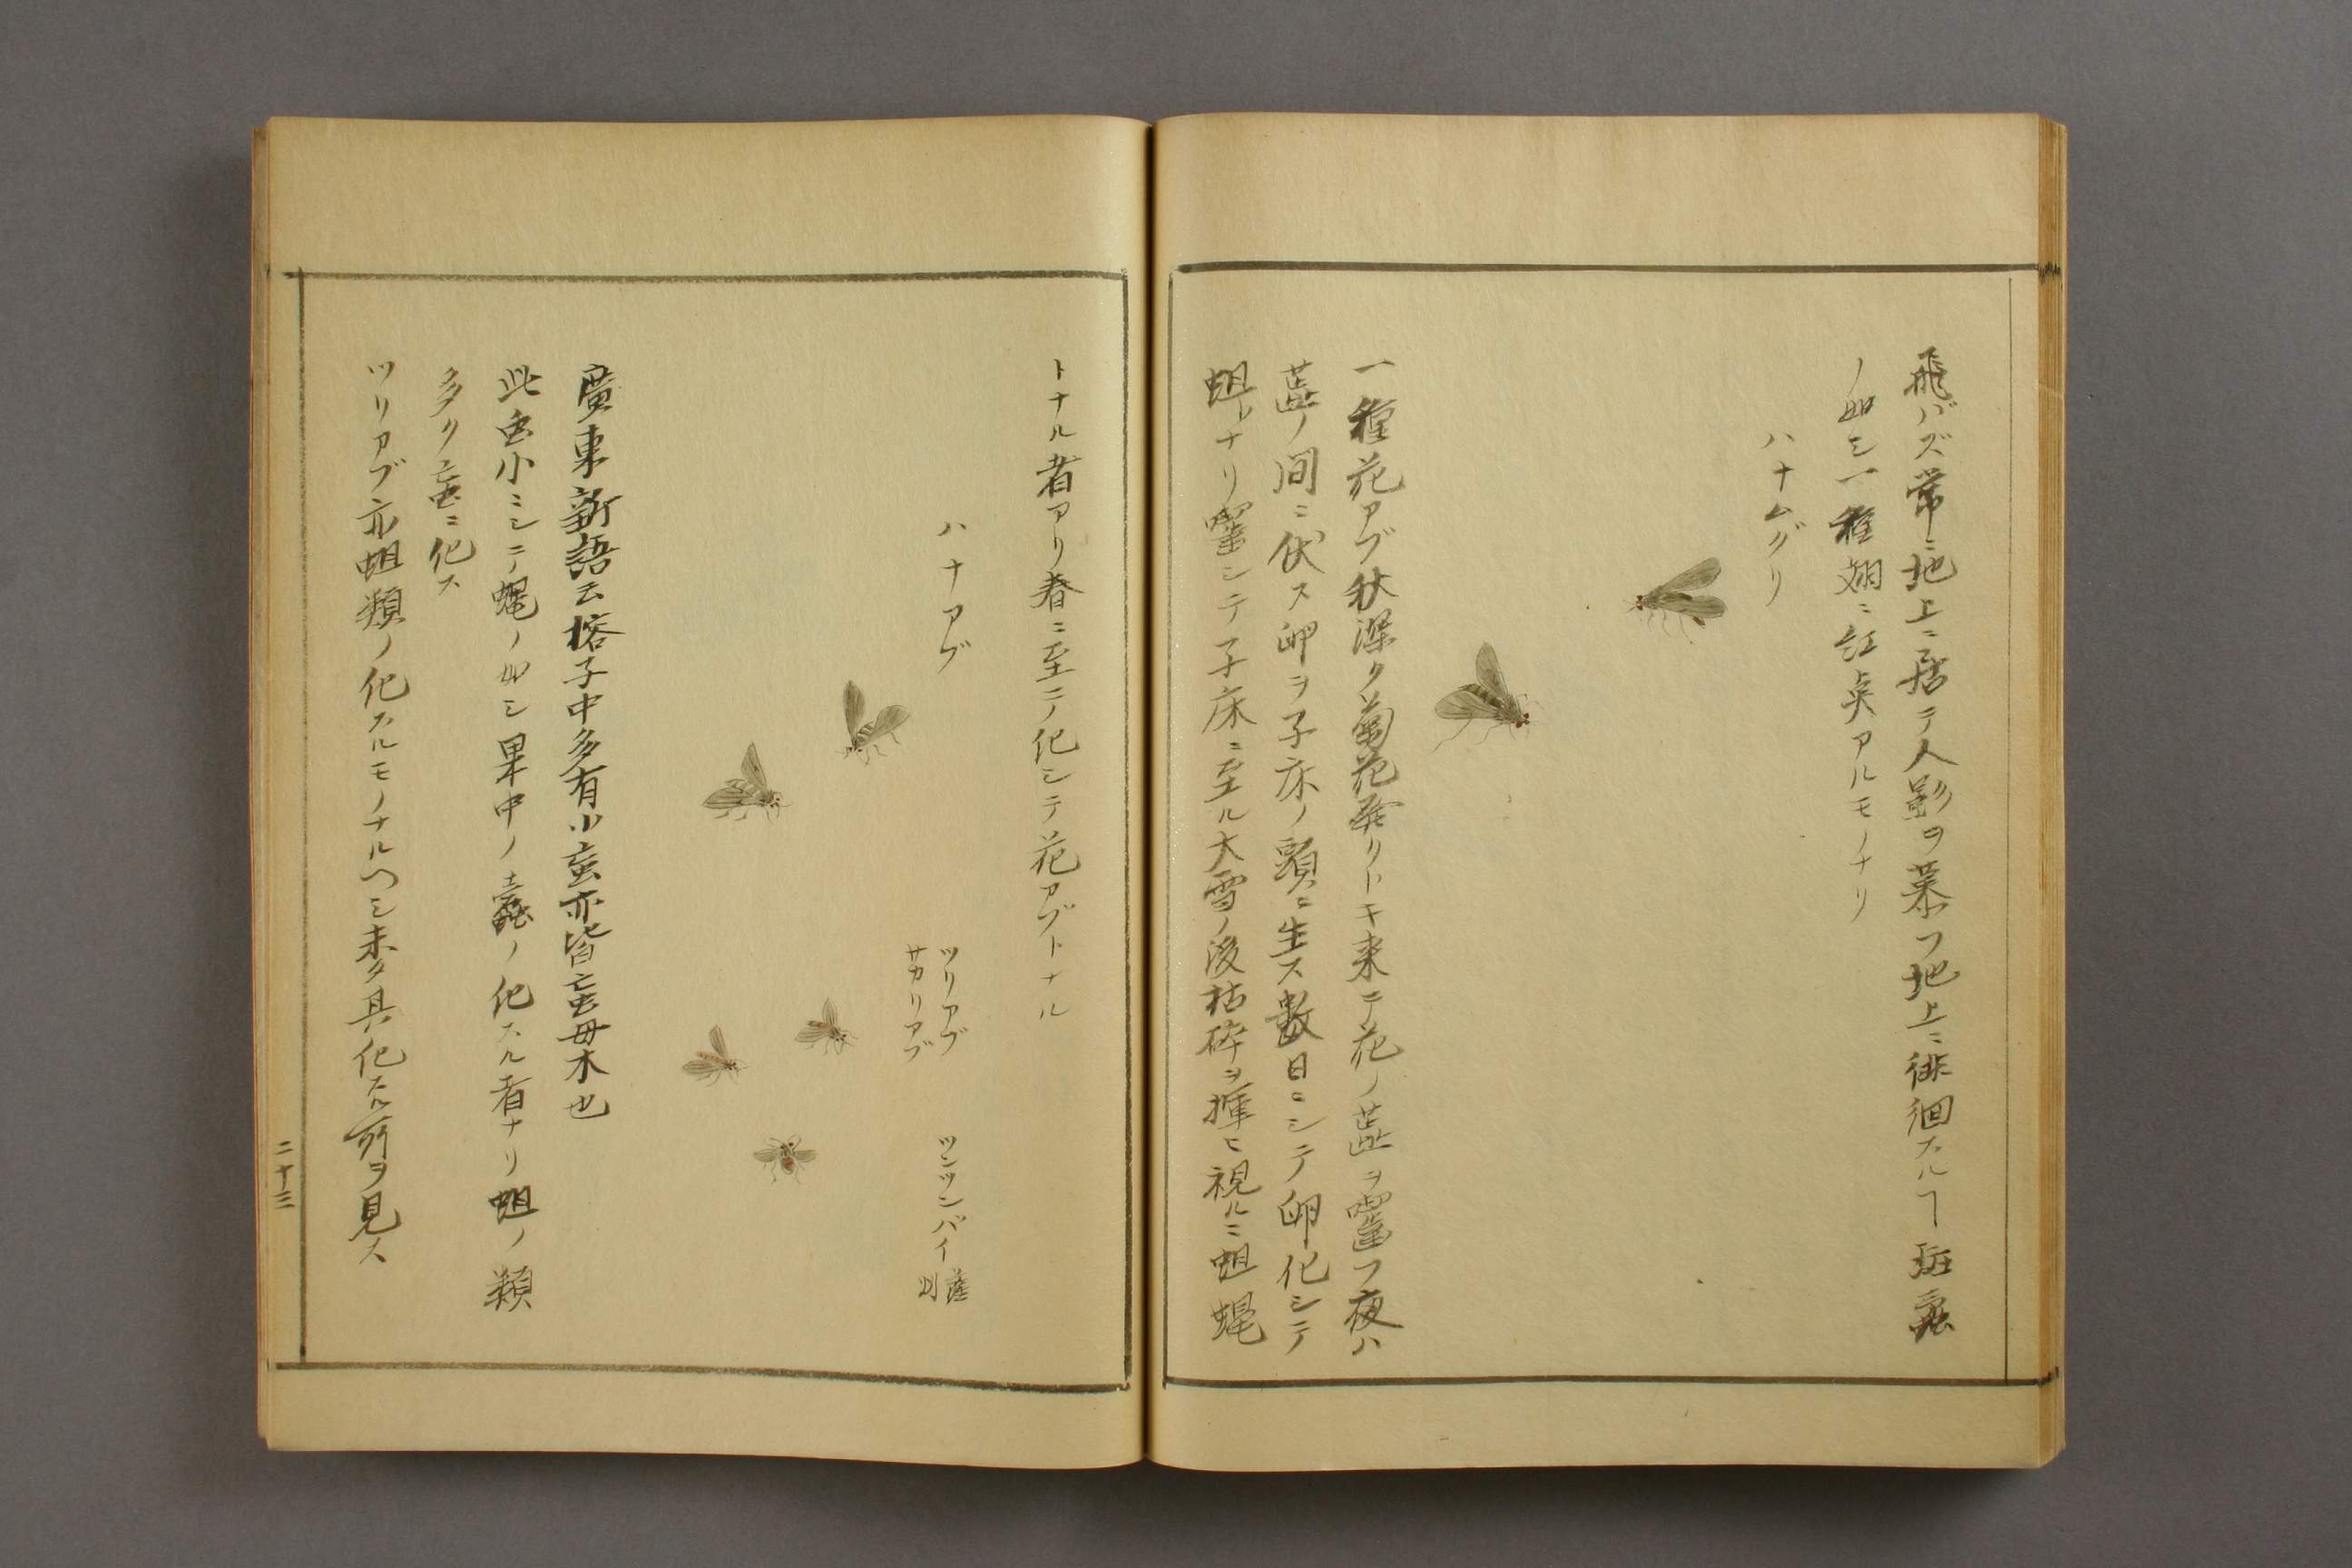 飛バズ常ニ地上ニ居テ人影ヲ慕フ地上ニ徘徊スルヿ斑蝥
ノ如シ一種翅ニ紅点アルモノナリ
ハナムグリ
一種花アブ秋深ク菊花発クトキ来テ花ノ蕋ヲ囓フ夜ハ
蕋ノ間ニ伏ス卵ヲ子床ノ頭ニ生ス数日ニシテ卵化シテ
蛆トナリ囓シテ子床ニ至ル大雪ノ後枯砕ヲ揮ヒ視ルニ蛆蠅
トナル者アリ春ニ至テ化シテ花アブトナル
ハナアブ
ツリアブ
サカリアブ
ツンツンバイ薩州
廣東新語云榕子中多有小䖟亦皆䖟母木也
此䖟小ニシテ蠅ノ如シ果中ノ蠹ノ化スル者ナリ蛆ノ類
多ク䖟ニ化ス
ツリアブ亦蛆類ノ化スルモノナルヘシ未タ其化スル所ヲ見ス
二十三